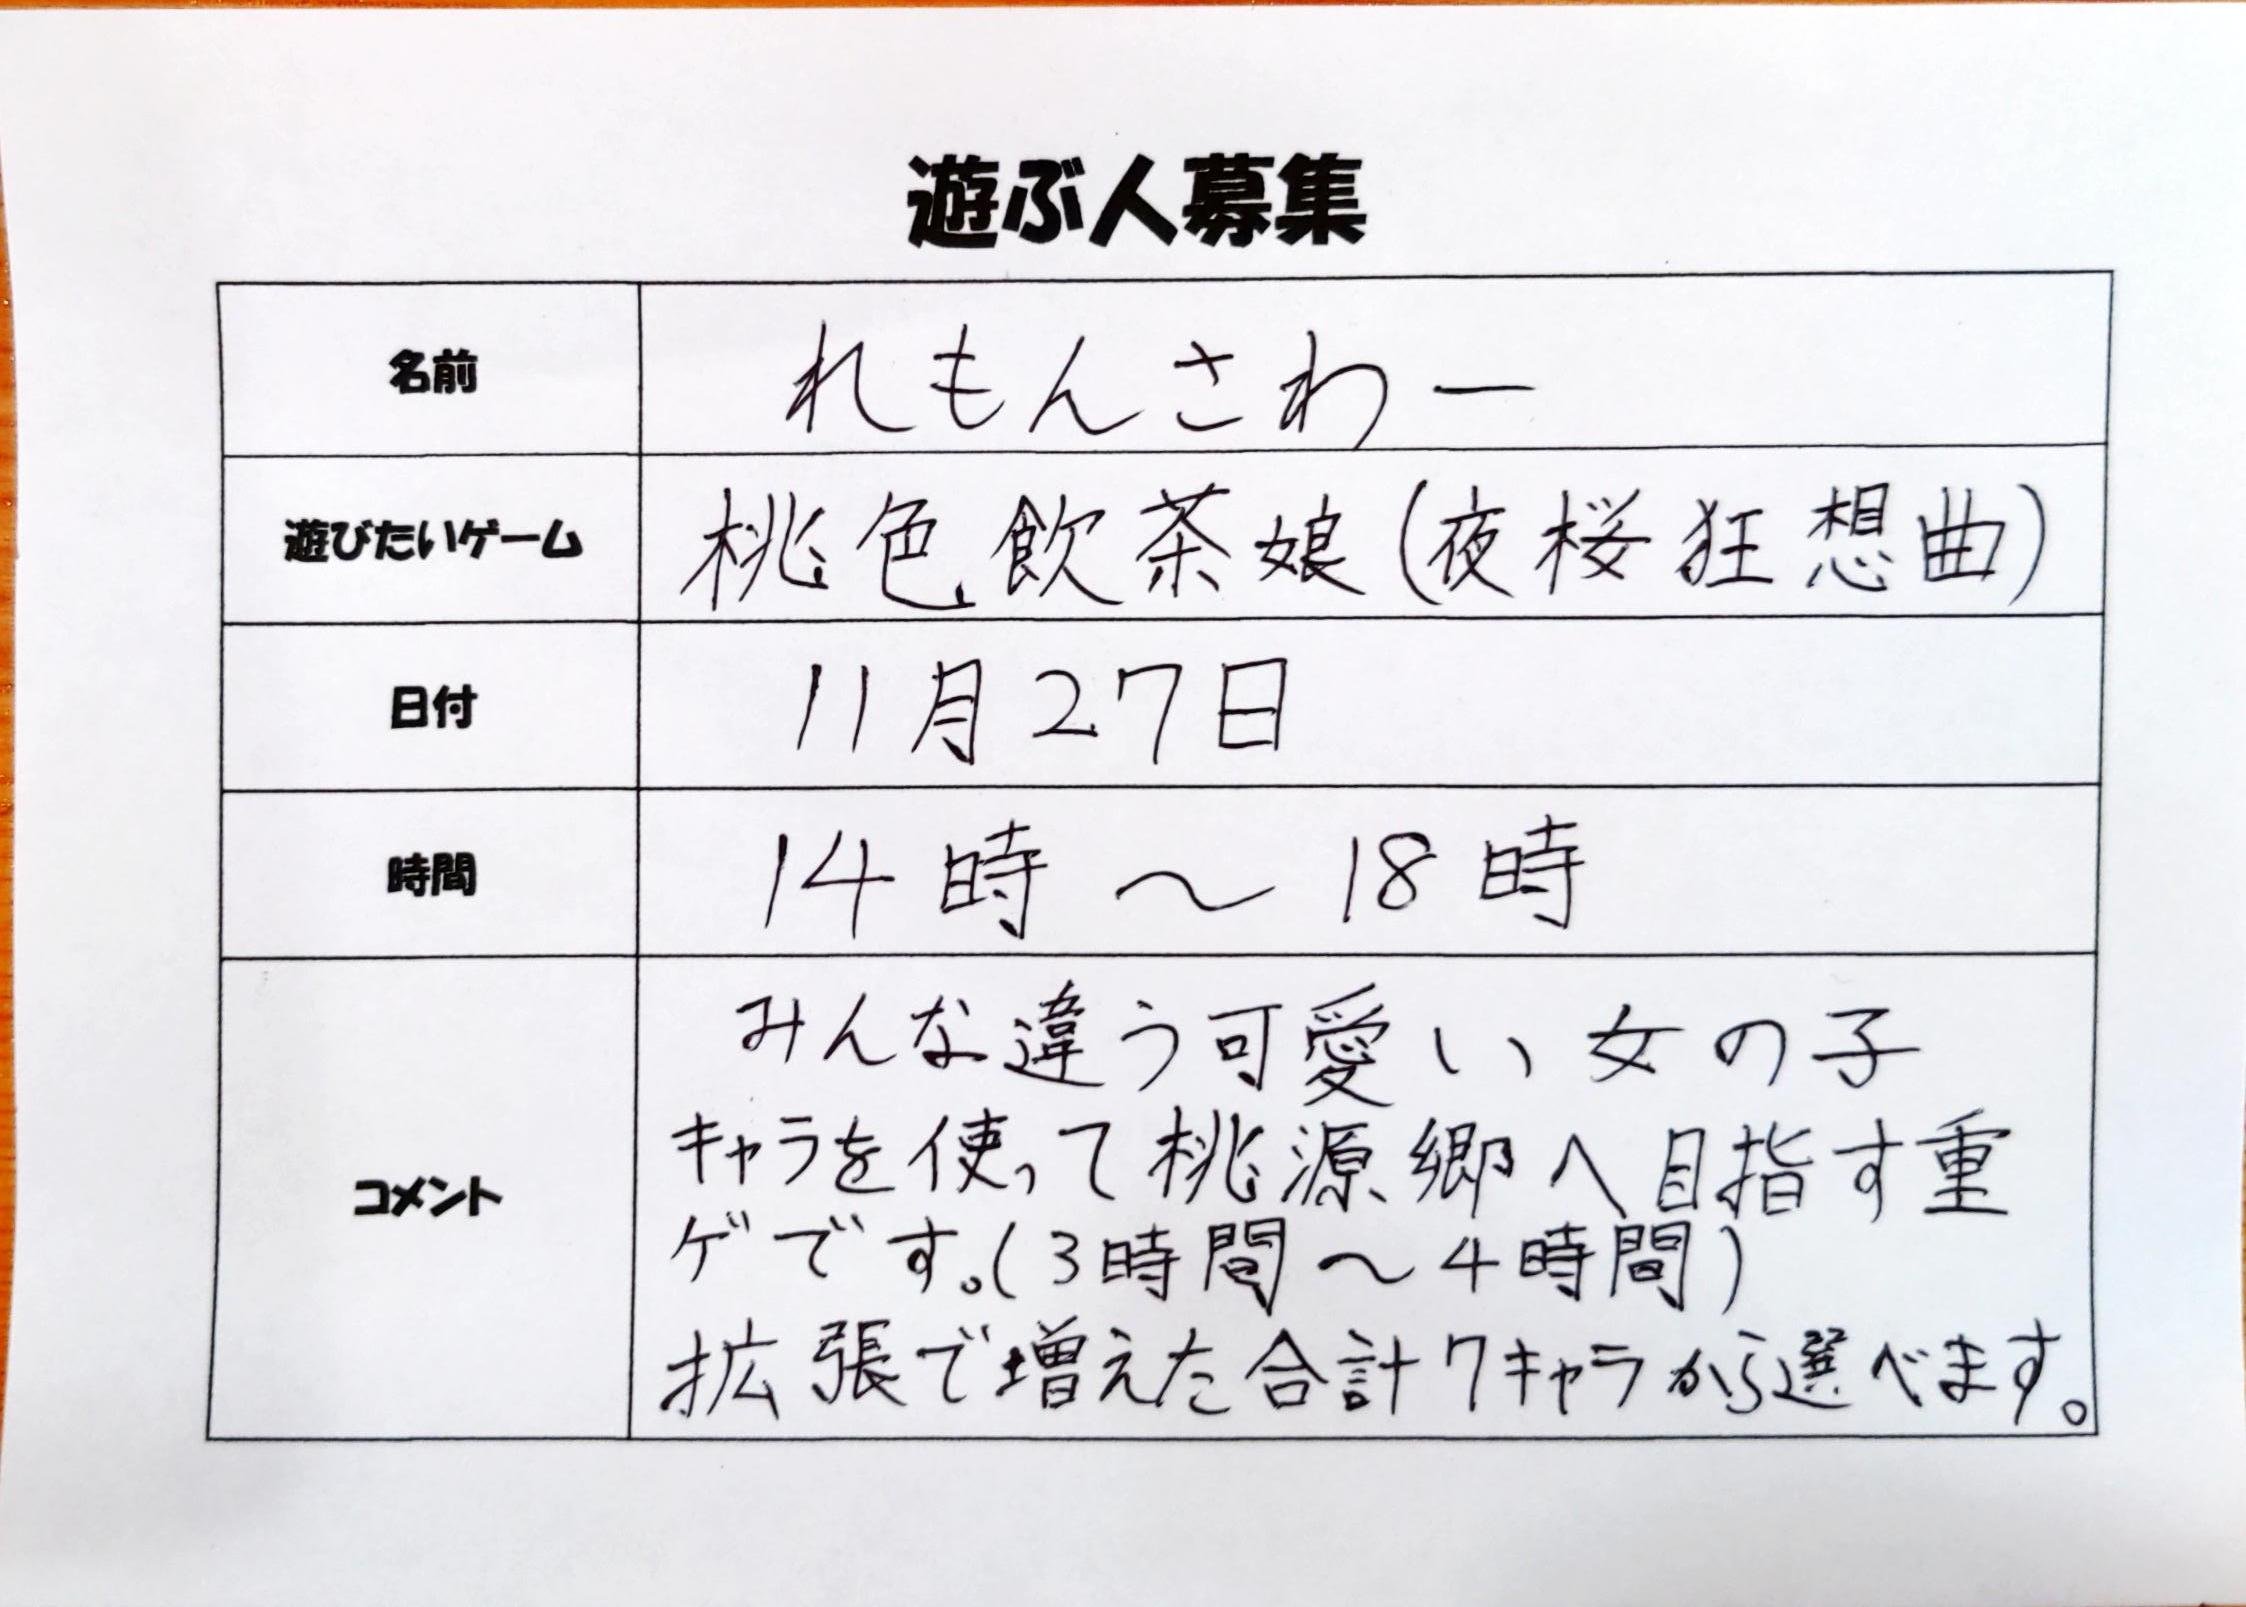 遊ぶ人募集
名前 れもんさわー
遊びたいゲーム 桃色飲茶娘(夜桜狂想曲)
日付 11月27日
時間 14時～18時
コメント
みんな違う可愛い女の子
キャラを使って桃源郷へ目指す重
ゲです。(3時間～4時間)
拡張で増えた合計7キャラから選べます。